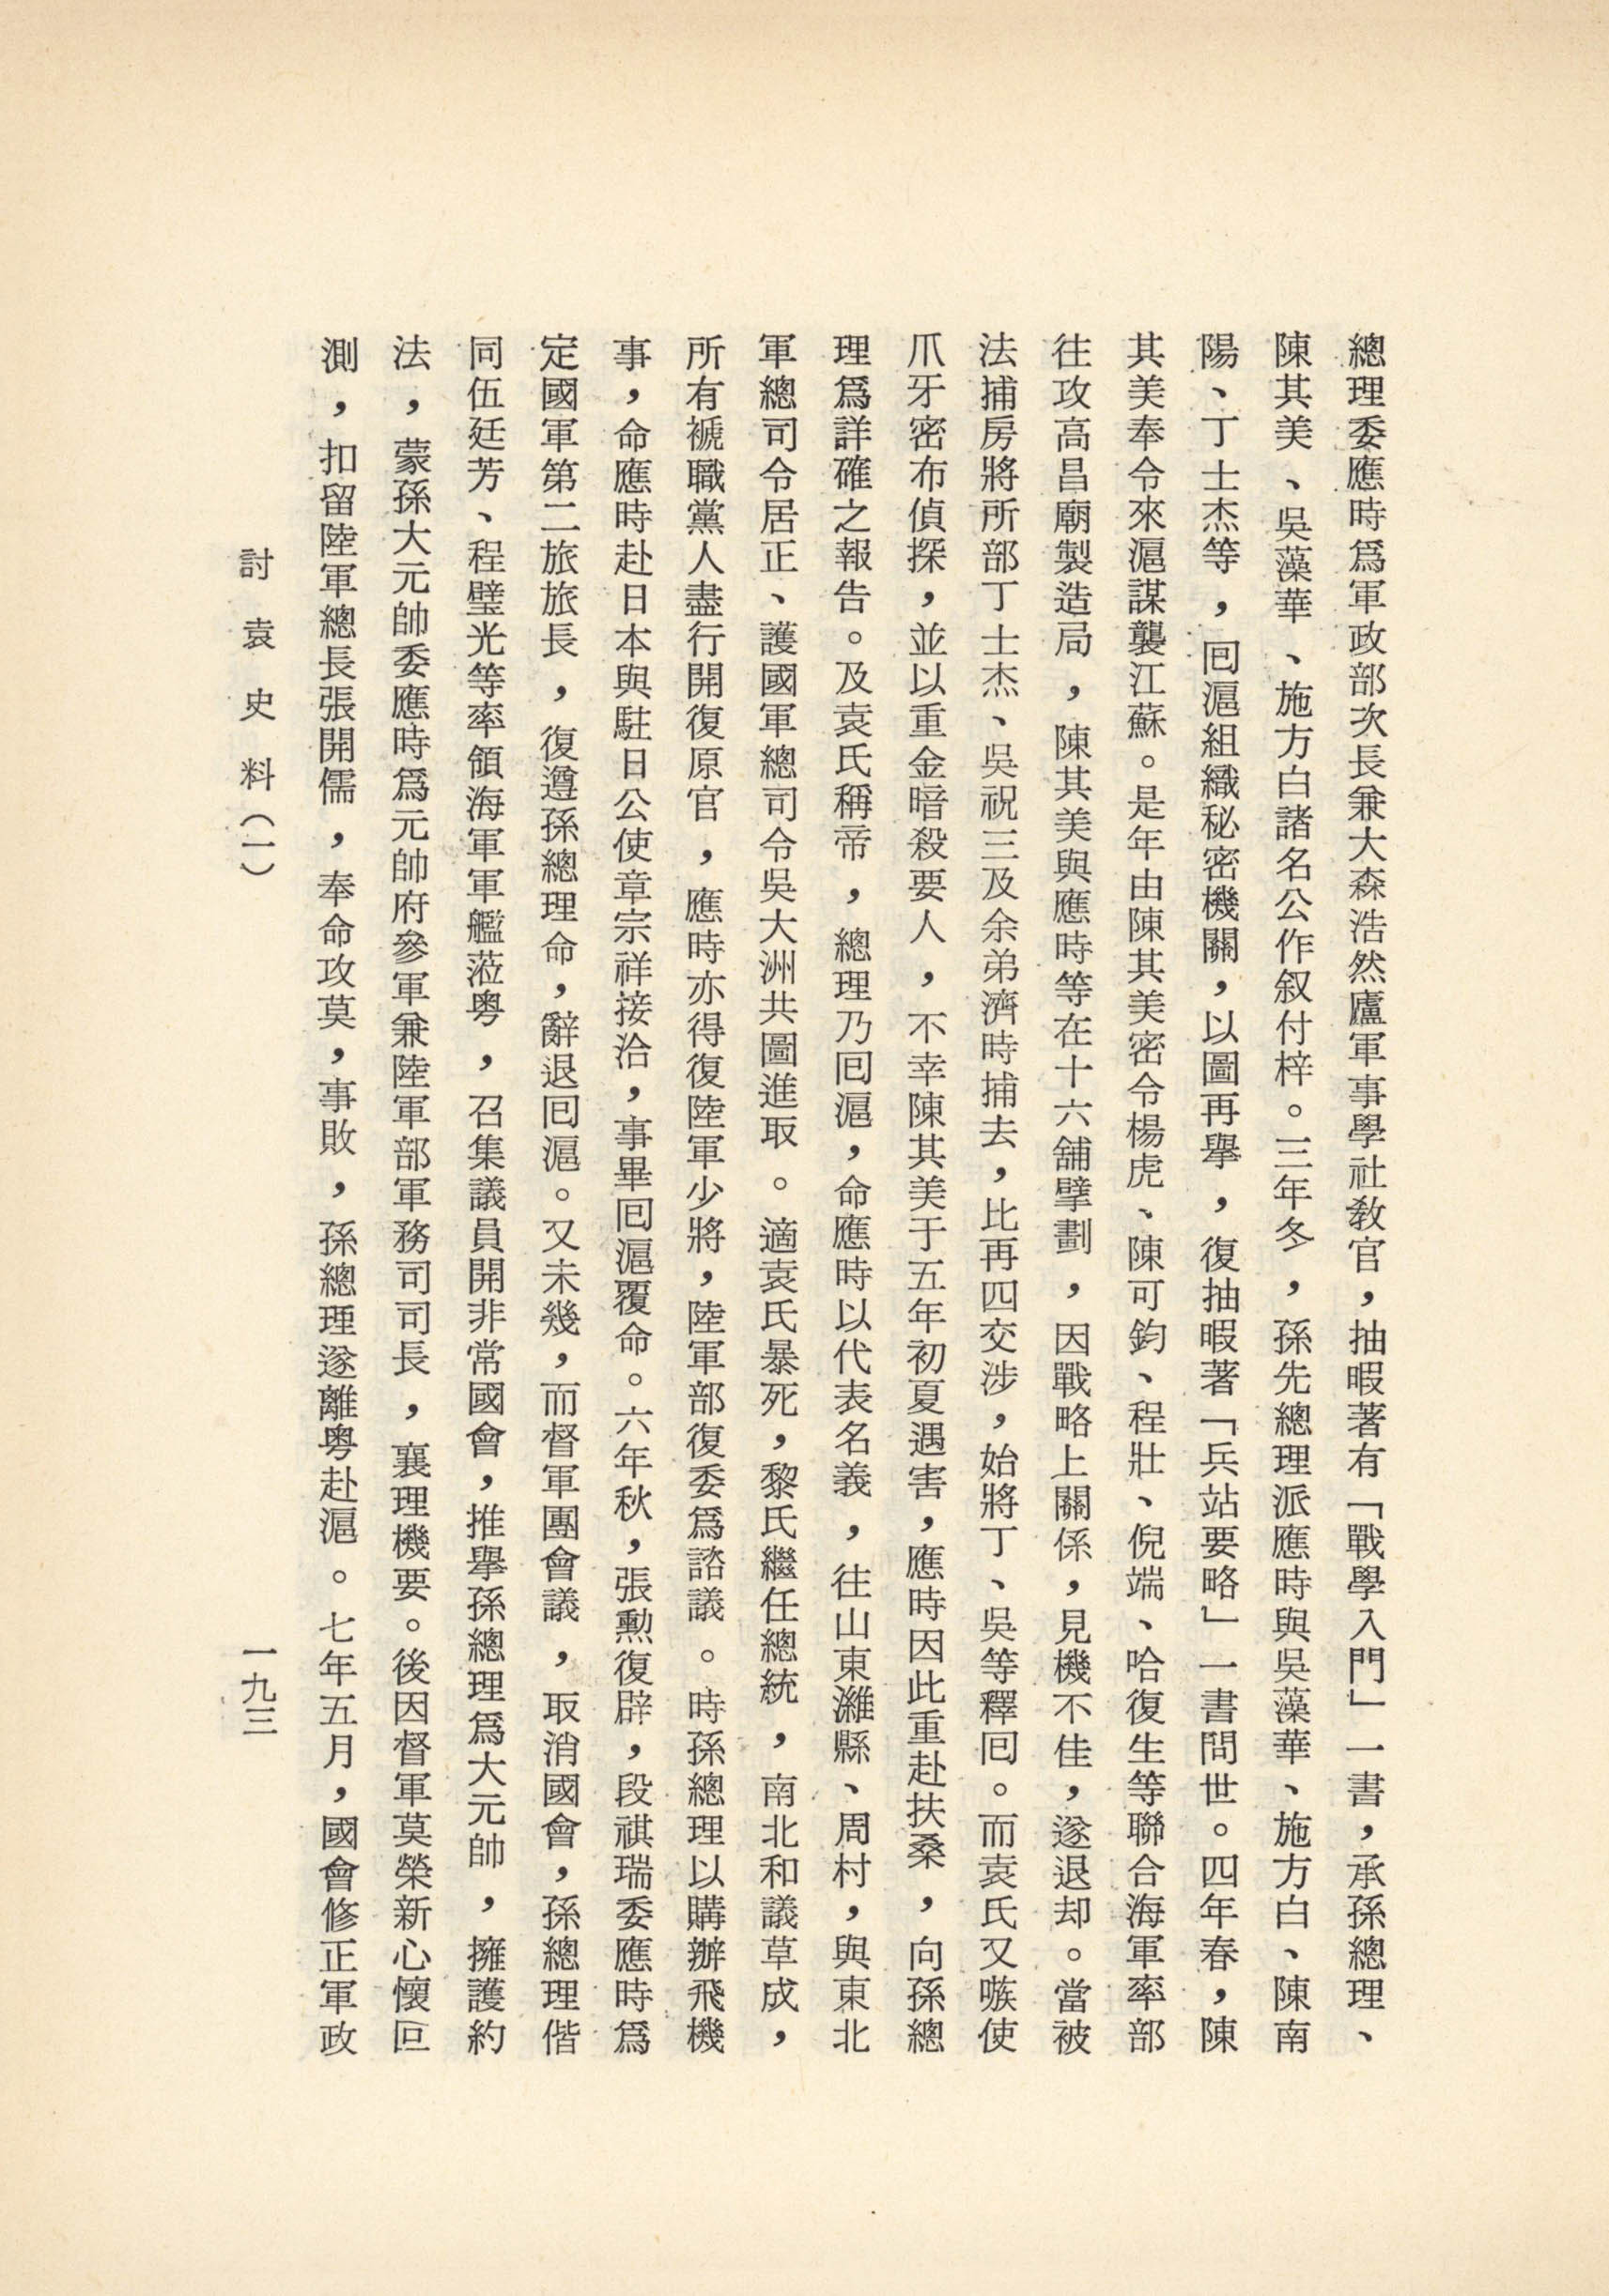 總理委應時爲軍政部次長兼大森浩然廬軍事學社教官，抽暇著有「戰學入門」一書，承孫總理、
陳其美、吳藻華、施方白諸名公作叙付梓。三年冬，孫先總理派應時與吳藻華、施方白、陳南
陽、丁士杰等，囘滬組織秘密機關，以圖再擧，復抽暇著「兵站要略」一書問世。四年春，陳
其美奉令來滬謀襲江蘇。是年由陳其美密令楊虎、陳可鈞、程壯、倪端、哈復生等聯合海軍率部
往攻高昌廟製造局，陳其美與應時等在十六舖擘劃，因戰略上關係，見機不佳，遂退却。當被
法捕房將所部丁士杰、吳祝三及余弟濟時捕去，比再四交涉，始將丁、吳等釋囘。而袁氏又嗾使
爪牙密布偵探，並以重金暗殺要人，不幸陳其美于五年初夏遇害，應時因此重赴扶桑，向孫總
理爲詳確之報告。及袁氏稱帝，總理乃囘滬，命應時以代表名義，往山東濰縣、周村，與東北
軍總司令居正、護國軍總司令吳大洲共圖進取。適袁氏暴死，黎氏繼任總統，南北和議草成，
所有褫職黨人盡行開復原官，應時亦得復陸軍少將，陸軍部復委爲諮議。時孫總理以購辦飛機
事，命應時赴日本與駐日公使章宗祥接洽，事畢囘滬覆命。六年秋，張勳復辟，段祺瑞委應時爲
定國軍第二旅旅長，復遵孫總理命，辭退囘滬。又未幾，而督軍團會議，取消國會，孫總理偕
同伍廷芳、程璧光等率領海軍軍艦蒞粵，召集議員開非常國會，推擧孫總理爲大元帥，擁護約
法，蒙孫大元帥委應時爲元帥府參軍兼陸軍部軍務司司長，襄理機要。後因督軍莫榮新心懷叵
測，扣留陸軍總長張開儒，奉命攻莫，事敗，孫總理遂離粵赴滬。七年五月，國會修正軍政
討袁史料（一）
一九三